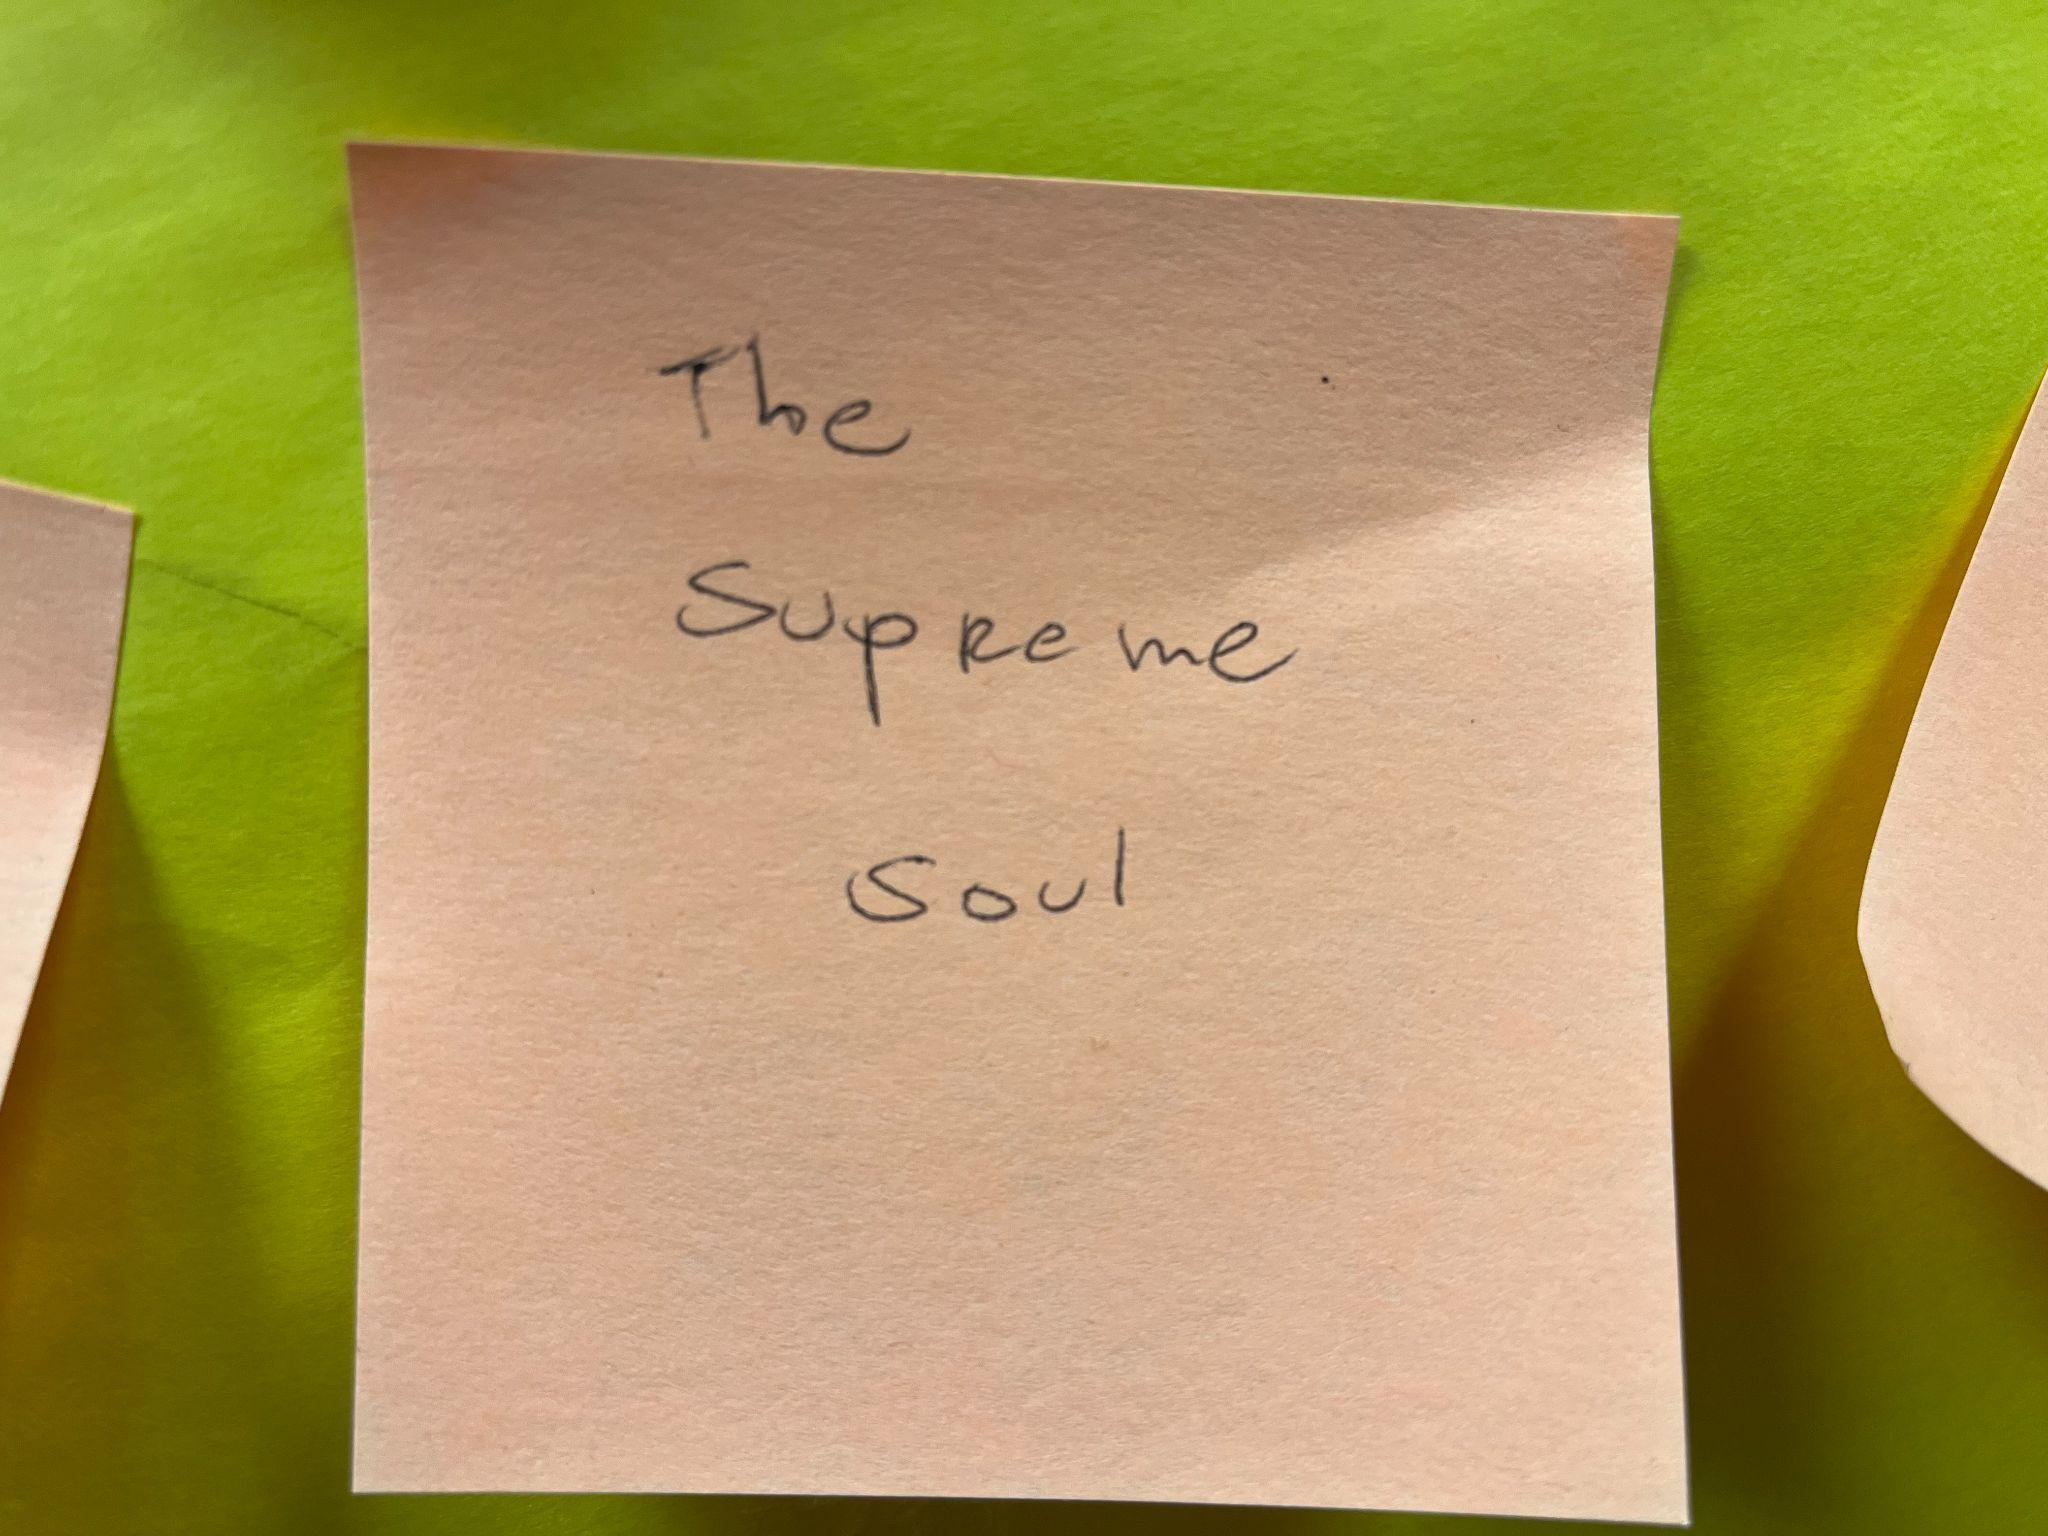 The
Supreme
Soul